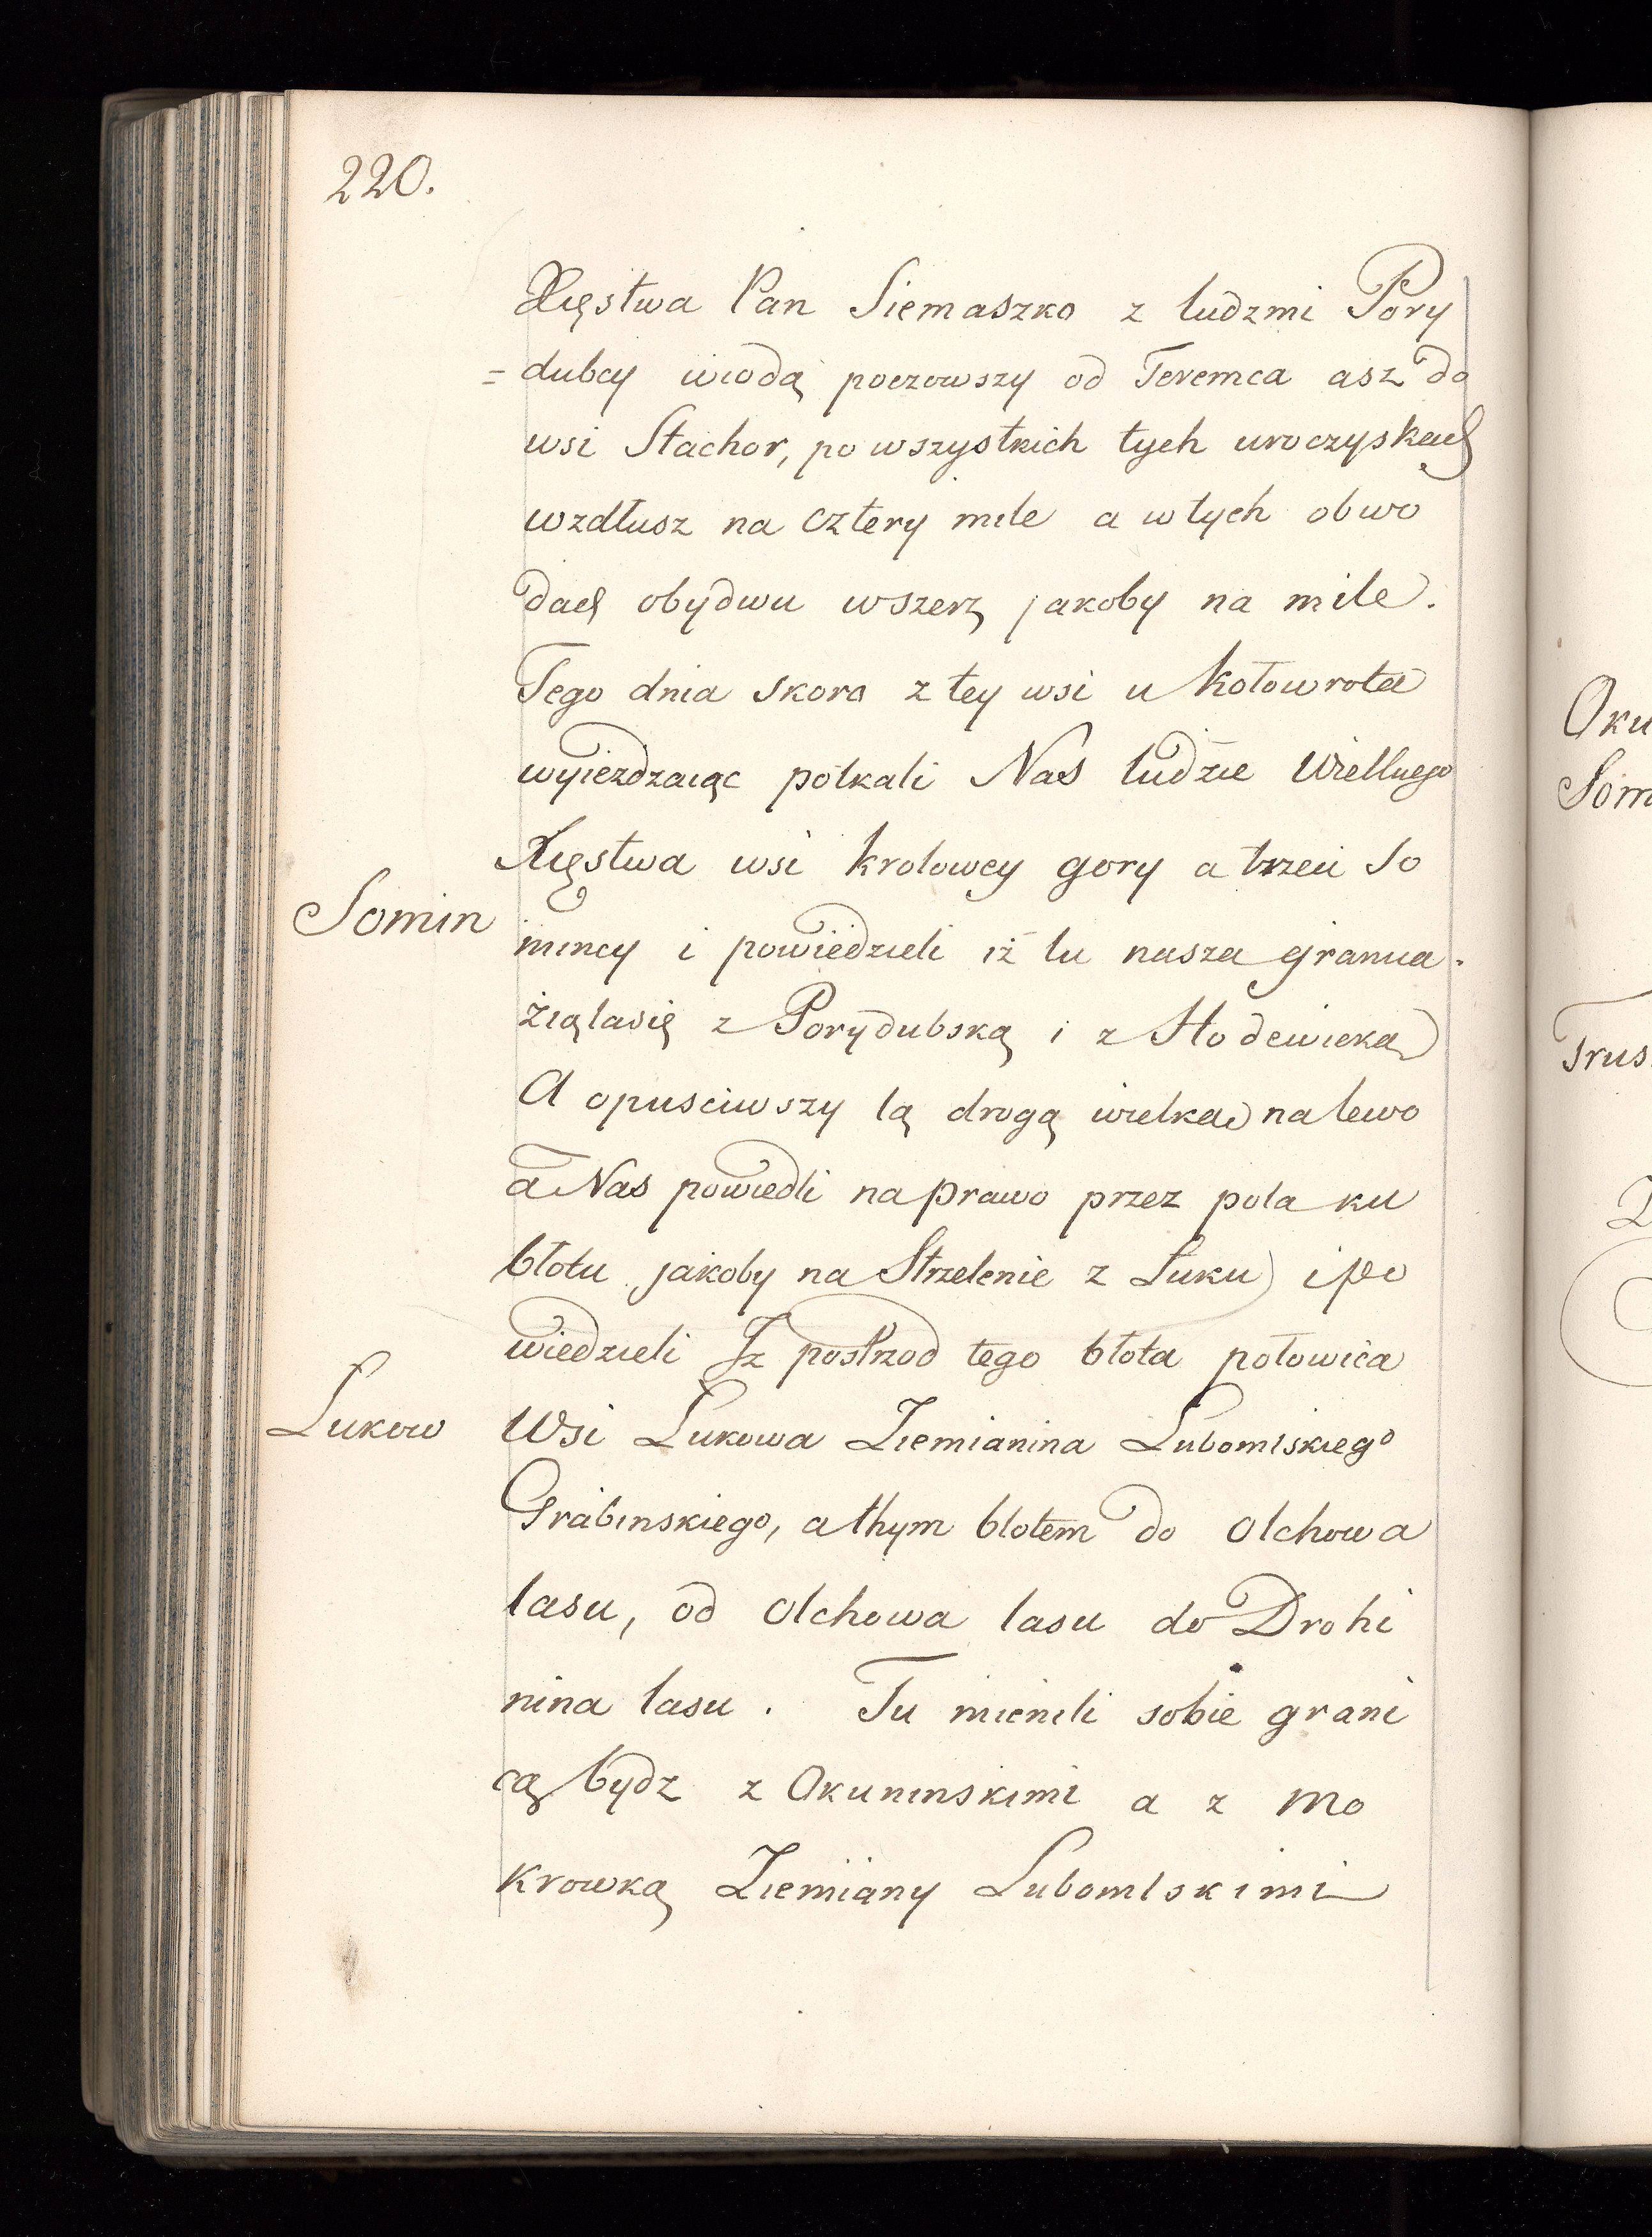 220.
Xięstwa Pan Siemaszko z ludzmi Pory
= dubcy wiodą poczowszy od Teremca asz do
wsi Stachor, po wszystkich tych uroczyskach
wzdłusz na cztery mile a w tych obwo
dach obydwu wszerz jakoby na mile.
Tego dnia skoro z tey wsi u kołowrota
wyieżdzaiąc potkali Nas ludzie Wielluego
Xięstwa wsi krolowey gory a trzeci So
Somin
mincy i powiedzieli iż tu nasza granica.
żięlasię z Porydubską i z Hodewicka
A opusciwszy tą drogą wielka na lewo
a Nas powiedli na prawo przez pola ku
błotu jakoby na Strzelenie z Łuku i po
wiedzieli Iz postrzod tego błota połowica
Lukow
Wsi Lukowa Ziemianina Lubomlskiego
Grabinskiego, a thym blotem do Olchowa
lasu, od Olchowa lasu do Drohi
nina lasu. Tu mienili sobie grani
cą bydz z Okuninskimi a z Mo
krowką Ziemiany Lubomlskimi
Oku
Som
Trus